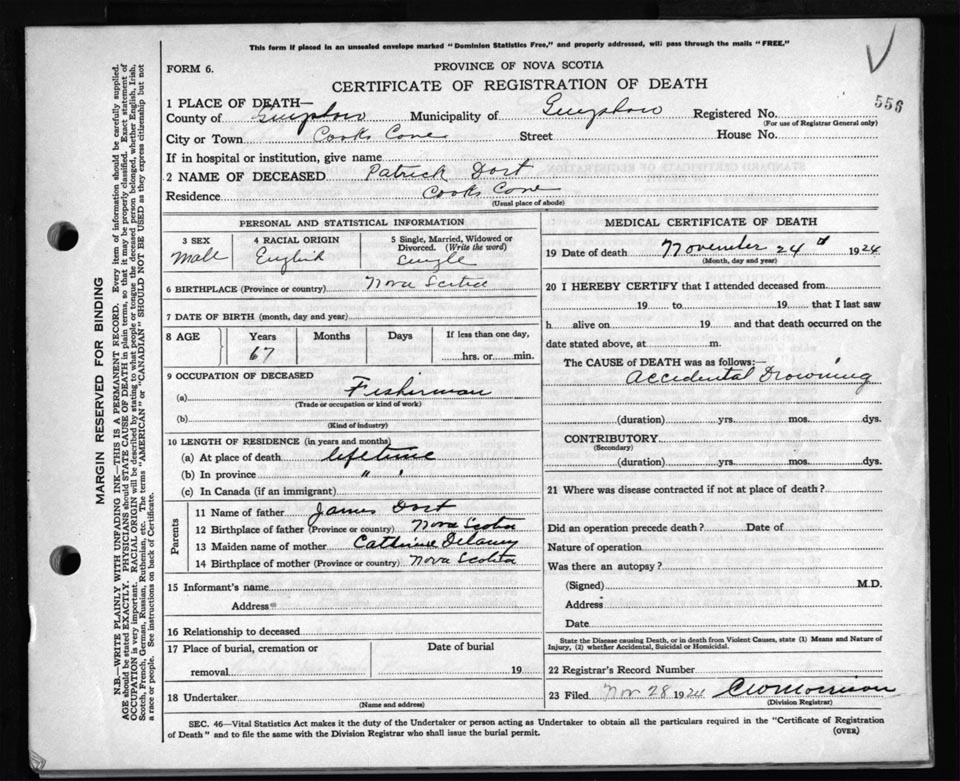 This form if placed in an unsealed envelope marked "Dominion Statistics Free," and properly addressed, will pass through the mails "FREE."
FORM 6.
PROVINCE OF NOVA SCOTIA
CERTIFICATE OF REGISTRATION OF DEATH
556
1 PLACE OF DEATH—
County of Guysboro Municipality of Guysboro Registered No.
(For use of Registrar General only)
City or Town Cooks Cove Street House No.
If in hospital or institution, give name
2 NAME OF DECEASED Patrick Dort
Residence Cooks Cove
(Usual place of abode)
PERSONAL AND STATISTICAL INFORMATION
3 SEX
Male
4 RACIAL ORIGIN
English
5 Single, Married, Widowed or Divorced. (Write the word)
Single
6 BIRTHPLACE (Province or country) Nova Scotia
7 DATE OF BIRTH (month, day and year)
8 AGE Years Months Days If less than one day,
67 hrs. or min.
9 OCCUPATION OF DECEASED
(a) Fisherman
(Trade or occupation or kind of work)
(b)
(Kind of industry)
10 LENGTH OF RESIDENCE (in years and months)
(a) At place of death lifetime
(b) In province " '
(c) In Canada (if an immigrant)
Parents
11 Name of father James Dort
12 Birthplace of father (Province or country) Nova Scotia
13 Maiden name of mother Cathrine Delaney
14 Birthplace of mother (Province or country) Nova Scotia
15 Informant's name
Address
16 Relationship to deceased
17 Place of burial, cremation or Date of burial
removal 19
18 Undertaker
(Name and address)
MEDICAL CERTIFICATE OF DEATH
19 Date of death November 24 1924
(Month, day and year)
20 I HEREBY CERTIFY that I attended deceased from
19 to 19 that I last saw
h alive on 19 and that death occurred on the
date stated above, at m.
The CAUSE of DEATH was as follows:—
Accidental Drowning
(duration) yrs. mos. dys.
CONTRIBUTORY
(Secondary)
(duration) yrs. mos. dys.
21 Where was disease contracted if not at place of death?
Did an operation precede death? Date of
Nature of operation
Was there an autopsy?
(Signed) M.D.
Address
Date
State the Disease causing Death, or in death from Violent Causes, state (1) Means and Nature of
Injury, (2) whether Accidental, Suicidal or Homicidal.
22 Registrar's Record Number
23 Filed Nov 28 1924 CWMorrison
(Division Registrar)
SEC. 46—Vital Statistics Act makes it the duty of the Undertaker or person acting as Undertaker to obtain all the particulars required in the "Certificate of Registration
of Death" and to file the same with the Division Registrar who shall issue the burial permit.
(OVER)
MARGIN RESERVED FOR BINDING
N.B.—WRITE PLAINLY WITH UNFADING INK—THIS IS A PERMANENT RECORD. Every items of information should be carefully supplied.
AGE should be stated EXACTLY. PHYSICIANS should STATE CAUSE OF DEATH in plain terms, so that it may be properly classified. Exact statement of
OCCUPATION is very important. RACIAL ORIGIN will be described by stating to what people or tongue the deceased person belonged, whether English, Irish,
Scotch, French, German, Russian, Ruthenian, etc. The terms "AMERICAN" or "CANADIAN" SHOULD NOT BE USED as they express citizenship but not
a race or people. See instructions on back of Certificate.